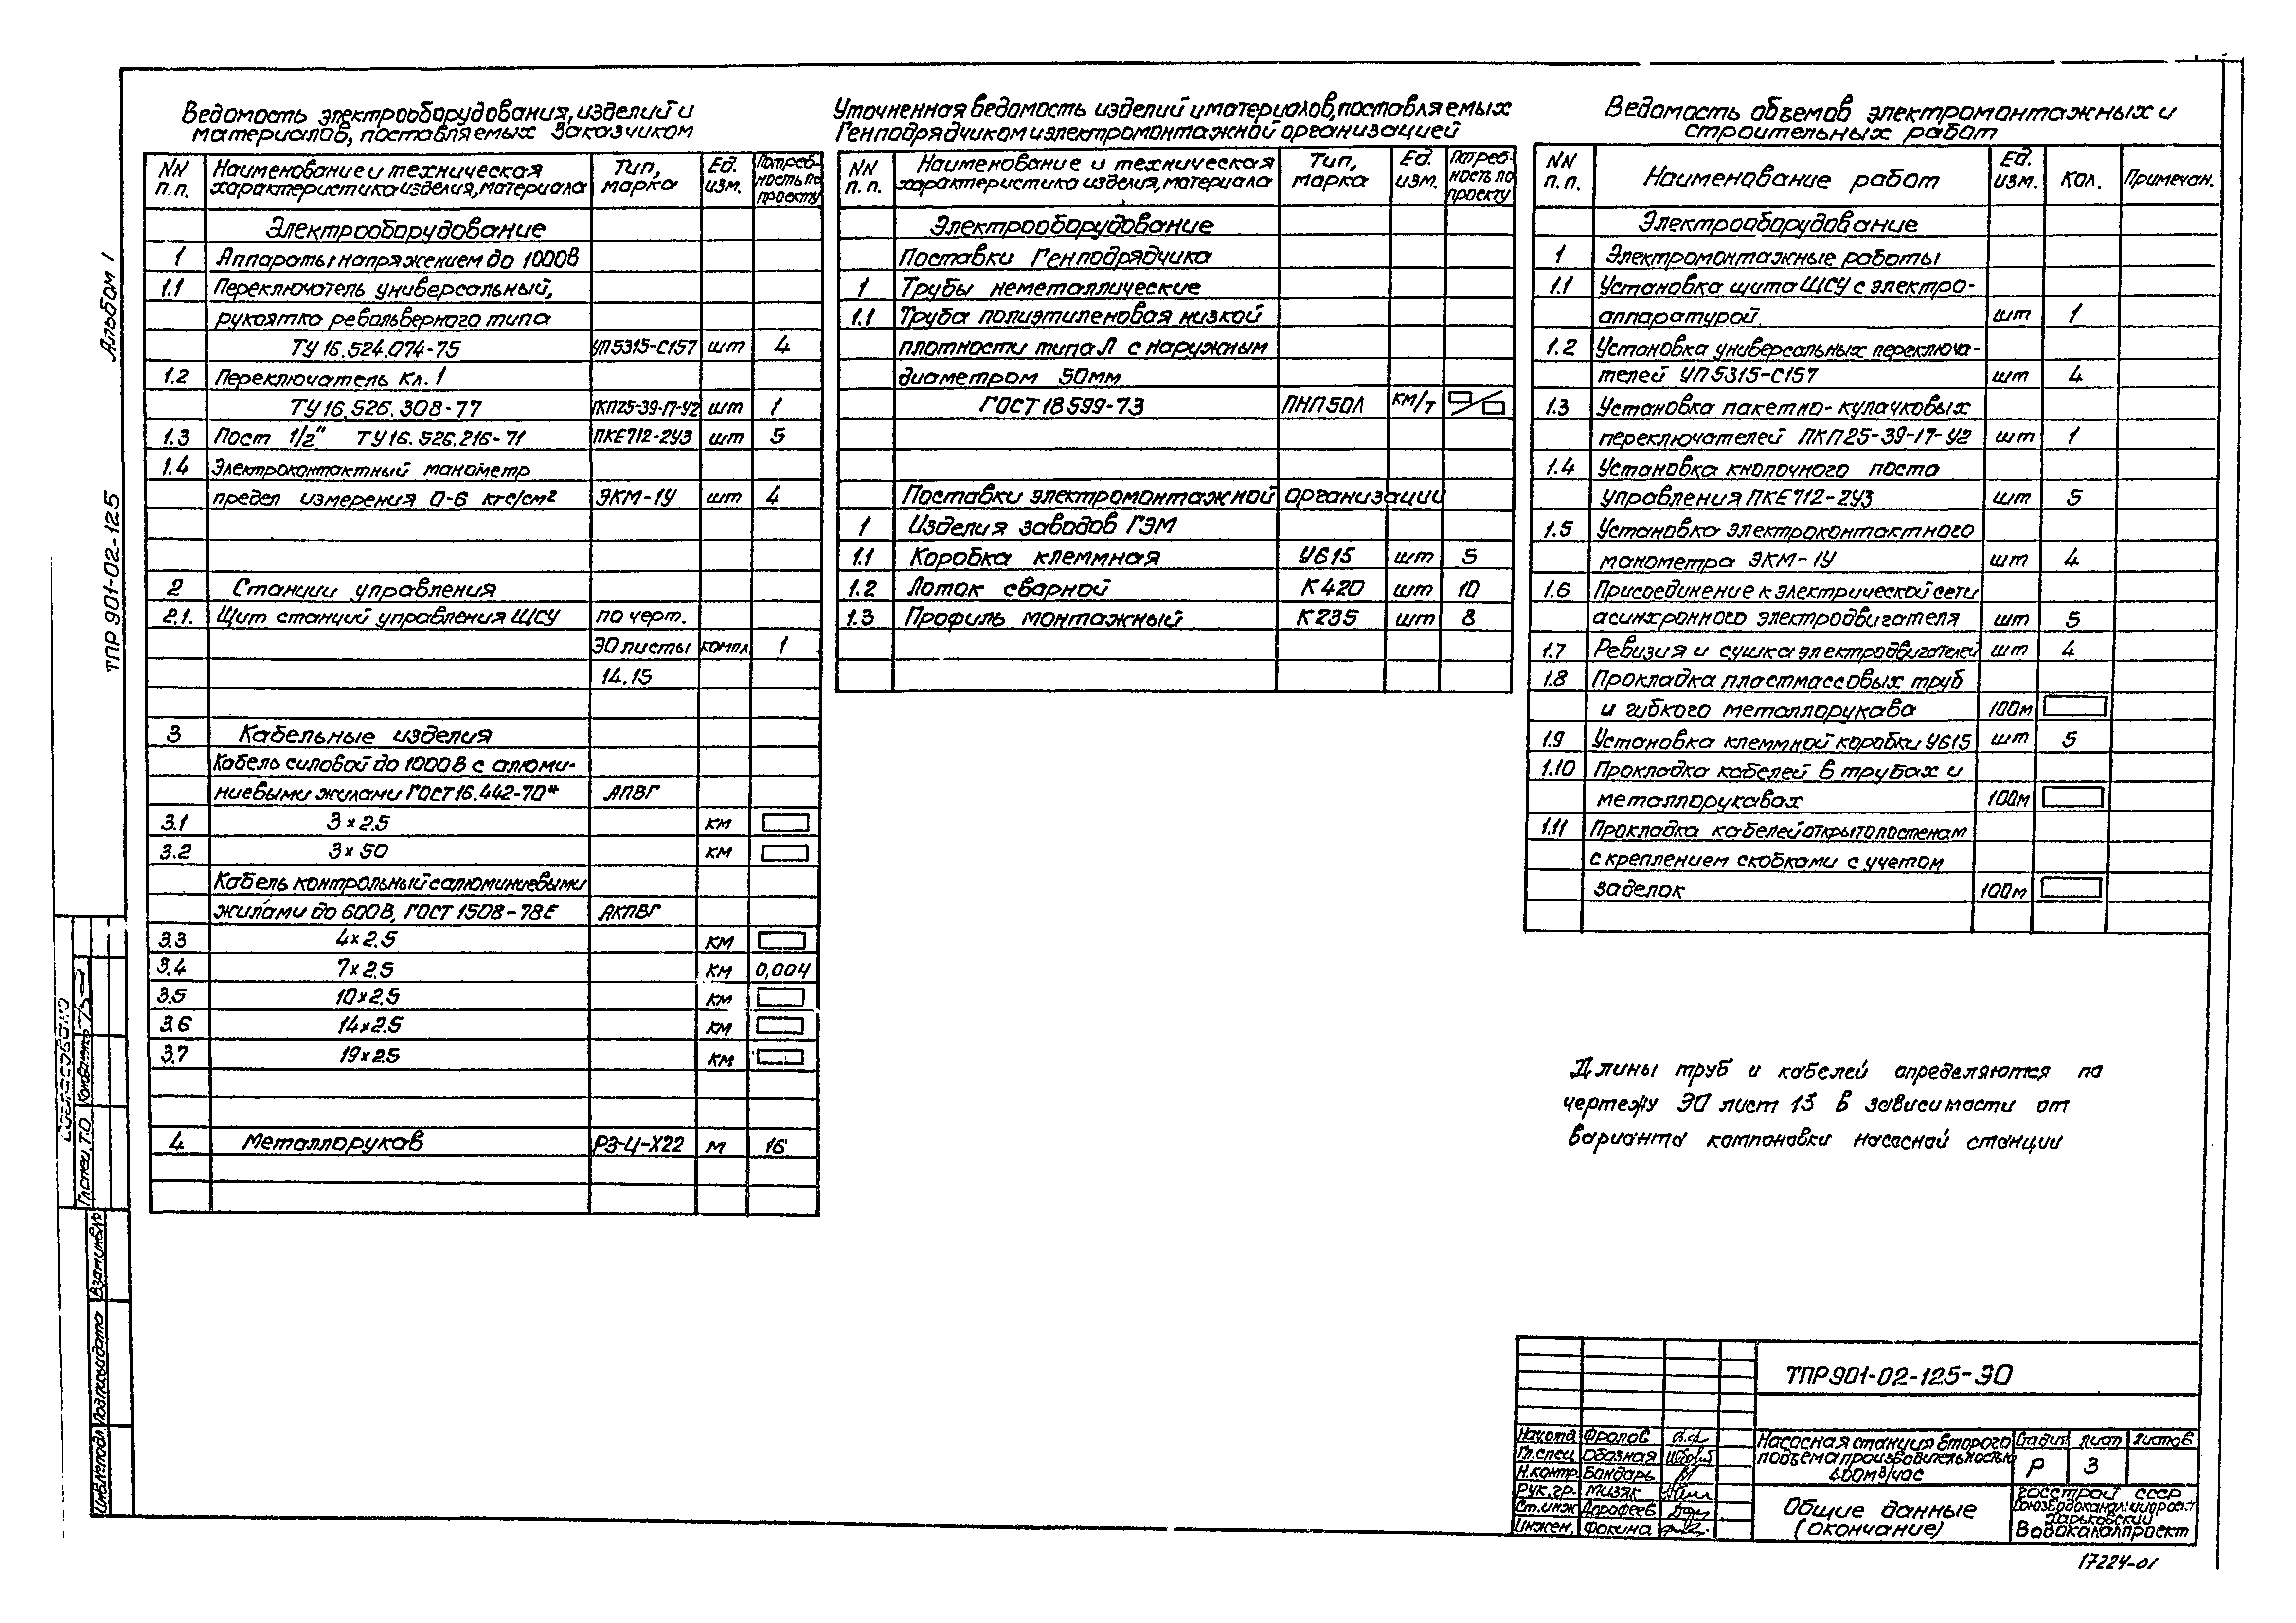 Альбом 1
ТПР 901-02-125
Ведомость электрооборудования, изделий и
материалов, поставляемых Заказчиком
NN п.п. Наименование и техническая характеристика изделия, материала Тип, марка Ед. изм. Потреб-ность по проекту
Электрооборудование
1 Аппараты напряжением до 1000В
1.1 Переключатель универсальный,
рукоятка револьверного типа
ТУ 16.524.074-75 УП5315-С157 шт 4
1.2 Переключатель кл. 1
ТУ 16.526.308-77 ПКП25-39-17-У2 шт 1
1.3 Пост 1/2" ТУ16.526.216-71 ПКЕ712-2У3 шт 5
1.4 Электроконтактный манометр
предел измерения 0-6 кгс/см² ЭКМ-1У шт 4
2 Станции управления
2.1. Щит станций управления ЩСУ по черт.
ЭО листы компл 1
14.15
3 Кабельные изделия
Кабель силовой до 1000В с алюми-
ниевыми жилами ГОСТ 16.442-70* АПВГ
3.1 3×2.5 км
3.2 3×50 км
Кабель контрольный с алюминиевыми
жилами до 600В, ГОСТ 1508-78Е АКПВГ
3.3 4×2.5 км
3.4 7×2.5 км 0,004
3.5 10×2.5 км
3.6 14×2.5 км
3.7 19×2.5 км
4 Металлорукав РЗ-Ц-Х22 м 16
Уточненная ведомость изделий и материалов, поставляемых
Генподрядчиком и электромонтажной организацией
NN п.п. Наименование и техническая характеристика изделия, материала Тип, марка Ед. изм. Потреб-ность по проекту
Электрооборудование
Поставки Генподрядчика
1 Трубы неметаллические
1.1 Труба полиэтиленовая низкой
плотности типа Л с наружным
диаметром 50мм
ГОСТ 18599-73 ПНП50Л км/т
Поставки электромонтажной организации
1 Изделия заводов ГЭМ
1.1 Коробка клеммная У615 шт 5
1.2 Лоток сварной К420 шт 10
1.3 Профиль монтажный К235 шт 8
Ведомость объемов электромонтажных и
строительных работ
NN п.п. Наименование работ Ед. изм. Кол. Примечан.
Электрооборудование
1 Электромонтажные работы
1.1 Установка щита ЩСУ с электро-
аппаратурой. шт 1
1.2 Установка универсальных переключа-
телей УП5315-С157 шт 4
1.3 Установка пакетно-кулачковых
переключателей ПКП25-39-17-У2 шт 1
1.4 Установка кнопочного поста
управления ПКЕ712-2У3 шт 5
1.5 Установка электроконтактного
манометра ЭКМ-1У шт 4
1.6 Присоединение к электрической сети
асинхронного электродвигателя шт 5
1.7 Ревизия и сушка электродвигателей шт 4
1.8 Прокладка пластмассовых труб
и гибкого металлорукава 100м
1.9 Установка клеммной коробки У615 шт 5
1.10 Прокладка кабелей в трубах и
металлорукавах 100м
1.11 Прокладка кабелей открыто по стенам
с креплением скобками с учетом
заделок 100м
Длины труб и кабелей определяются по
чертежу ЭО лист 13 в зависимости от
варианта компоновки насосной станции
Согласовано
Гл.спец. Т.О
Инв.№ подл. Подпись и дата Взам.инв.№
ТПР901-02-125-ЭО
Нач.отд. Фролов
Гл.спец. Обозная
Н.контр. Бондарь
Рук.гр. Мизяк
Ст.инж. Дорофеев
Инжен. Фокина
Насосная станция второго
подъема производительностью
400м³/час
Стадия Лист Листов
Р 3
Общие данные
(окончание)
Госстрой СССР
Союзводоканалниипроект
Харьковский
Водоканалпроект
17224-01